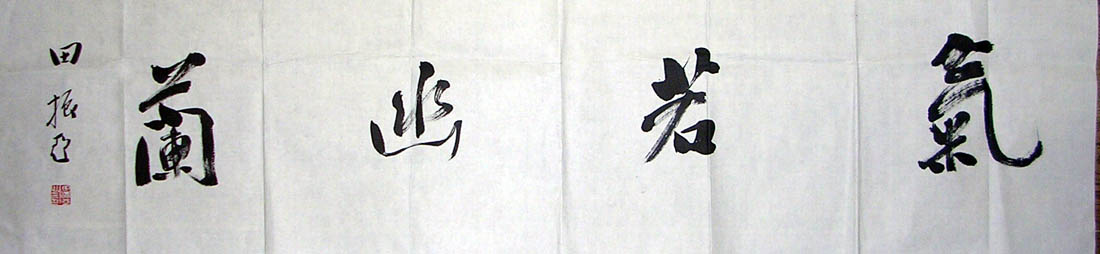 氣若幽蘭
田振亞